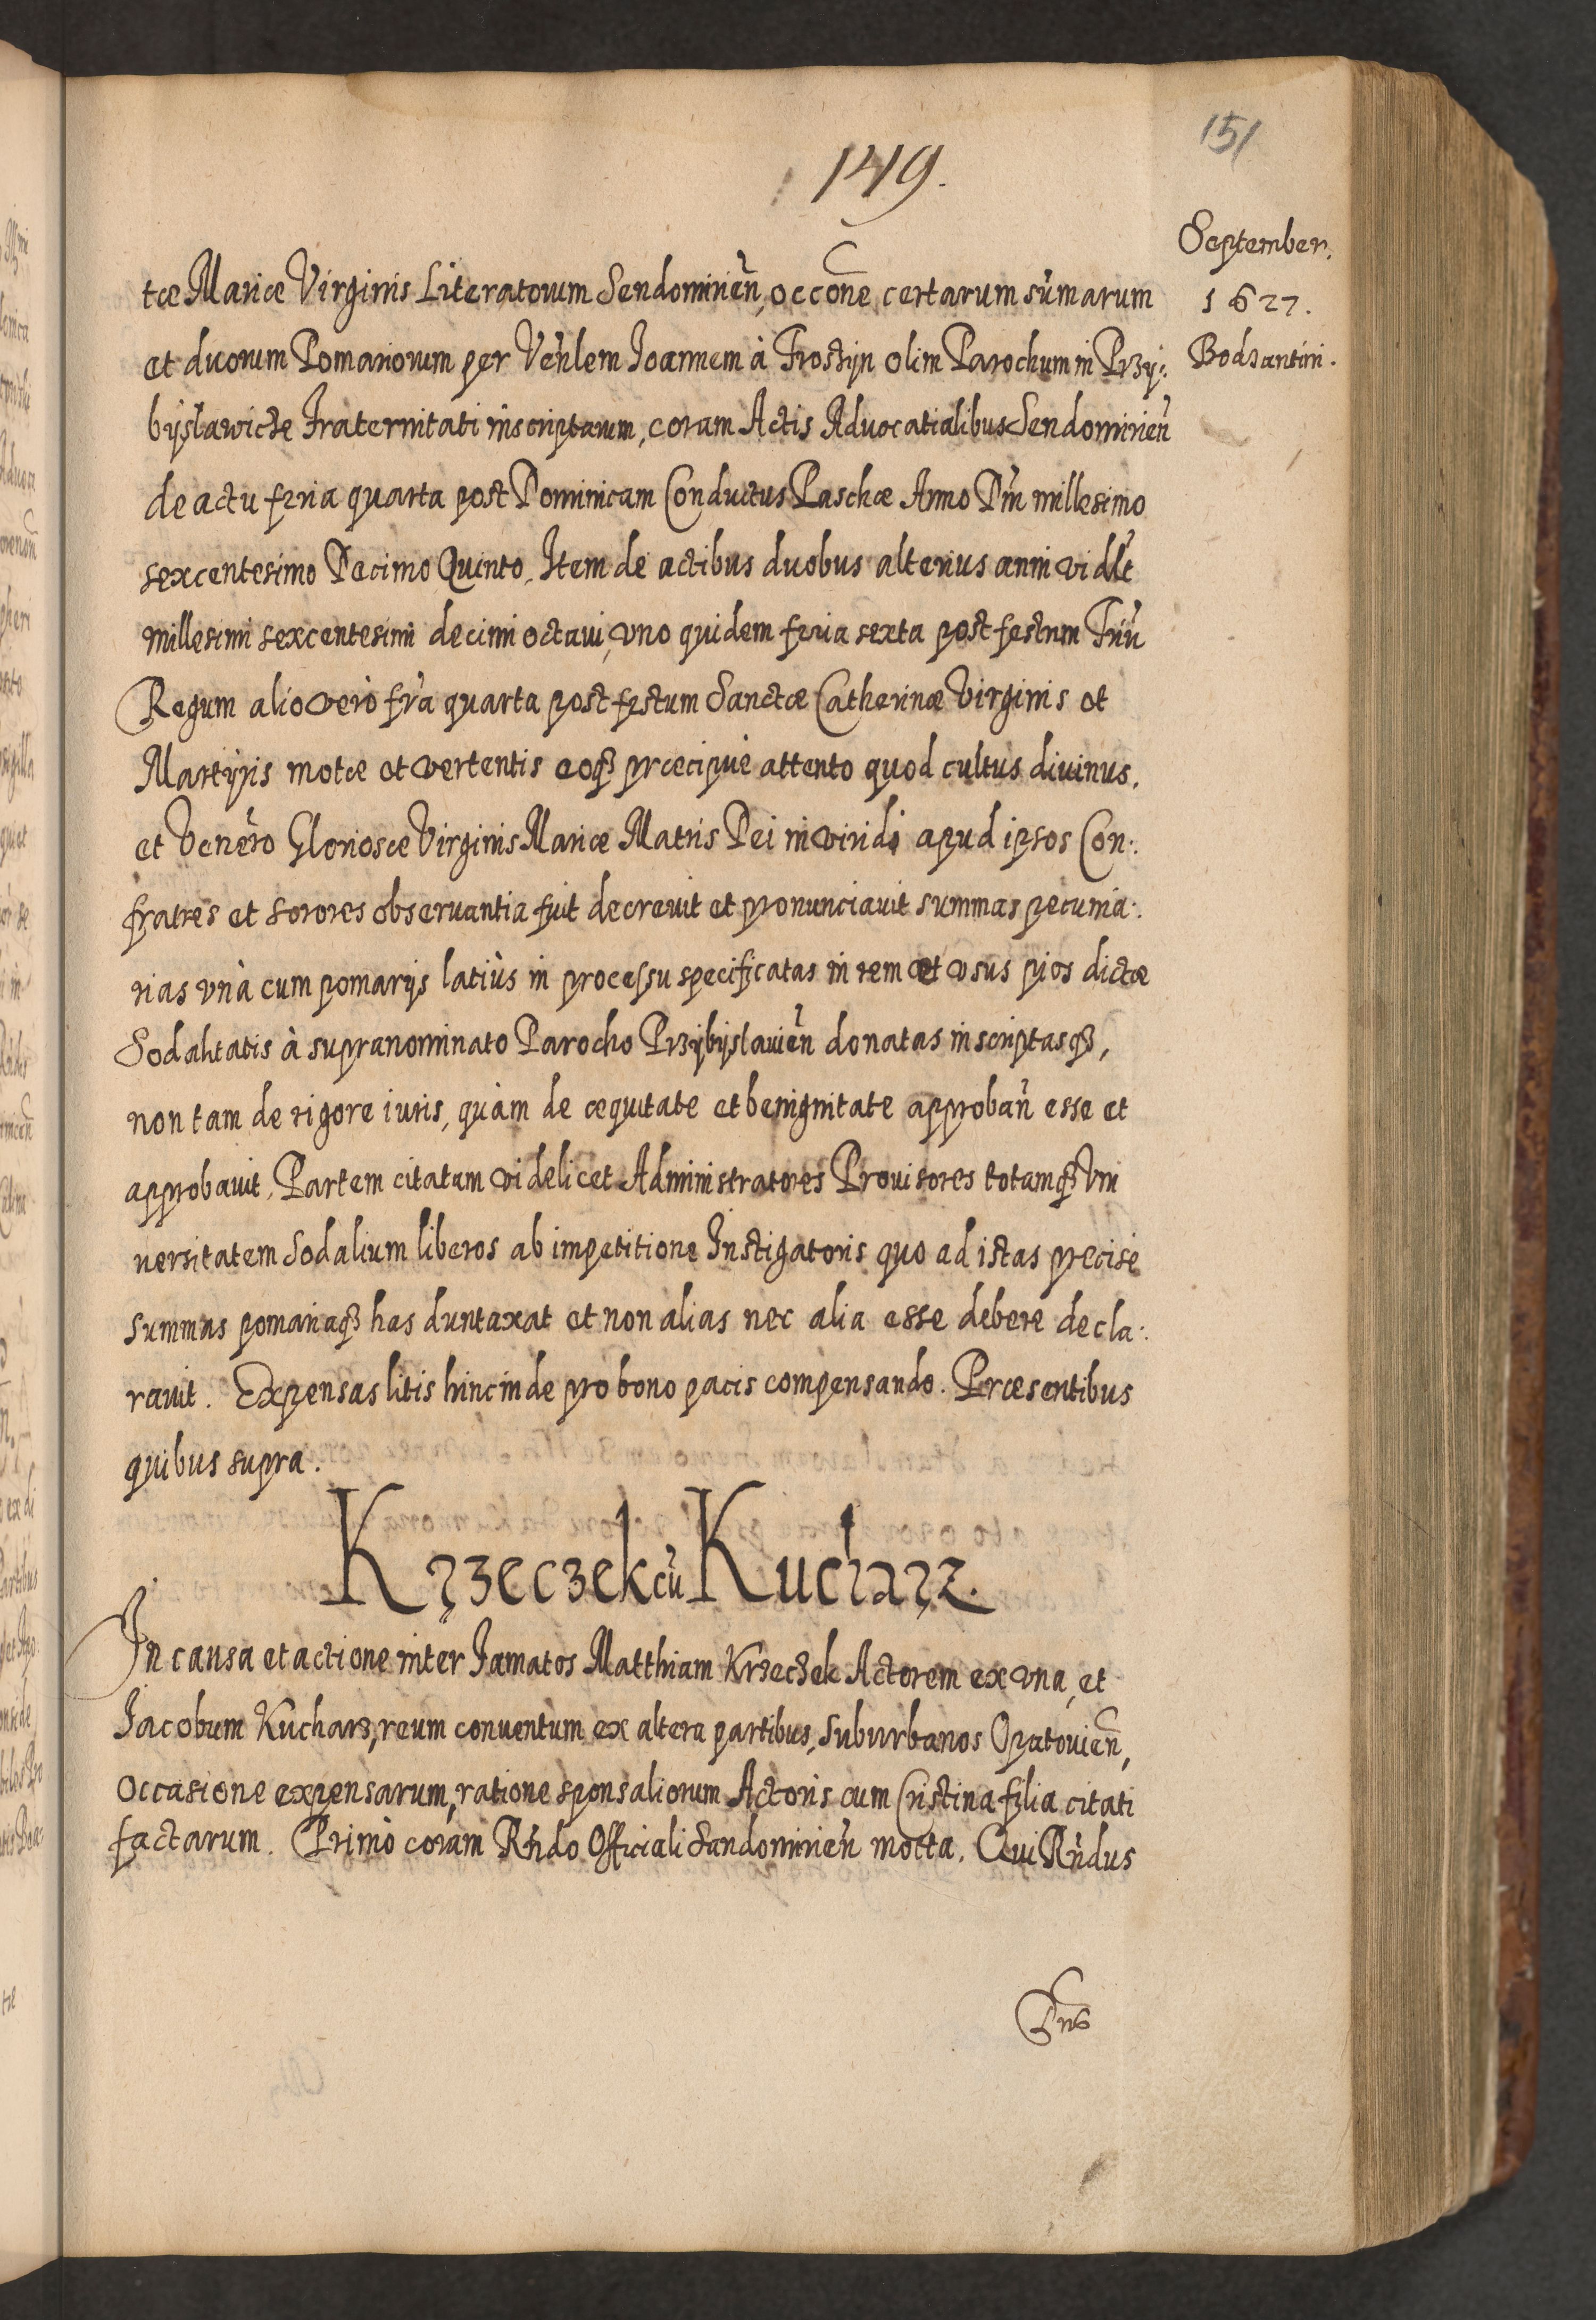 151
149.
September.
1627.
Bodzantin.
tæ Mariæ Virginis Literatorum Sendomirien̄, occōne certarum sūmarum
et duorum Pomariorum per Veñlem Joannem à Trostijn olim Parochum in Przy:
byslawicze Fraternitati inscriptarum, coram Actis Advocatialibus Sendomirien̄
de actu feria quarta post Dominicam Conductus Paschæ Anno Dnī millesimo
sexcentesimo Decimo Quinto, Item de actibus duobus alterius anni vidlt
millesimi sexcentesimi decimi octavi, vno quidem feria sexta post festum Triū
Regum alio verò fr̄a quarta post festum Sanctæ Catherinæ Virginis et
Martyris motæ et vertentis eoqȝ præcipuè attento quod cultus divinus,
et Venēro Gloriosæ Virginis Mariæ Matris Dei in viridi apud ipsos Con:
fratres et sorores observantia fuit decrevit et pronunciavit summas pecunia:
rias vnà cum pomarijs latiùs in processu specificatas in rem et vsus pios dictæ
Sodalitatis à supranominato Parocho Przybyslavien̄ donatas inscriptasqȝ,
non tam de rigore iuris, quàm de æquitate et benignitate approban̄ esse et
approbavit, Partem citatam videlicet Administratores Provisores totamqȝ Vni
versitatem Sodalium liberos ab impetitione Instigatoris quo ad istas precisè
summas pomariaqȝ has duntaxat et non alias nec alia esse debere decla:
ravit. Expensas litis hincinde pro bono pacis compensando. Præsentibus
quibus supra.
Krzeczek cū Kucharz.
In causa et actione inter Famatos Matthiam Krzeczek Actorem ex vna, et
Jacobum Kucharz, reum conventum ex altera partibus, Suburbanos Opatovien̄,
occasione expensarum, ratione sponsaliorum Actoris cum Cristina filia citati
factarum. Primò coram Rn̄do Officiali Sandomirien̄ mota. Qui Rn̄dus
Dns